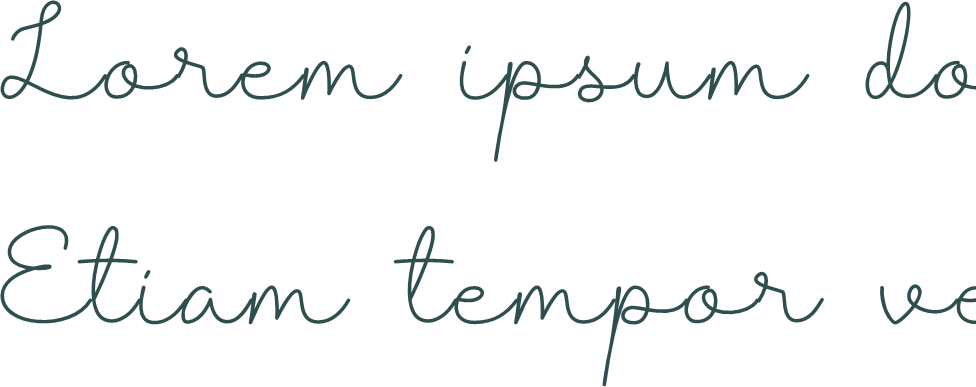 Lorem ipsum do
Etiam tempor ve